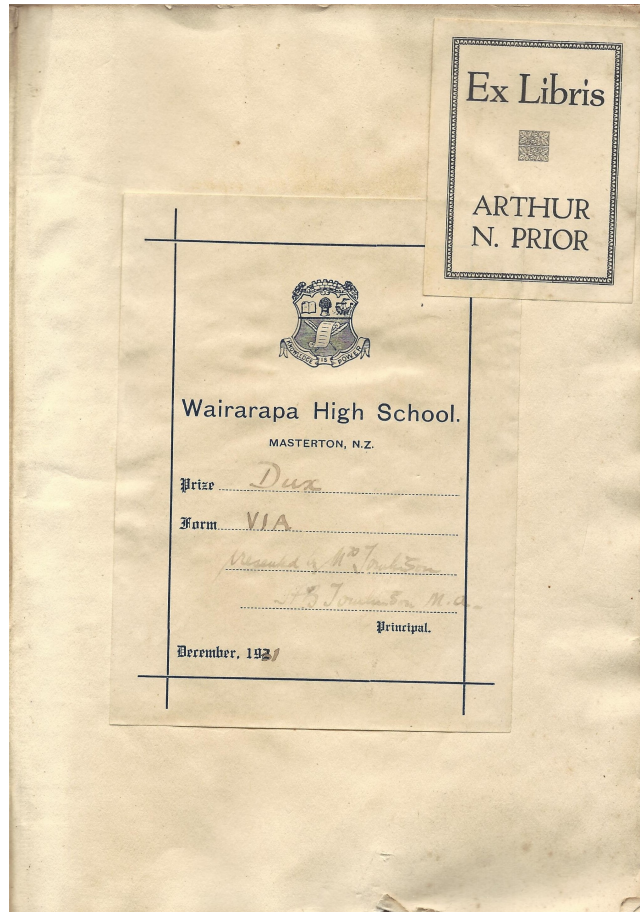 Ex Libris
ARTHUR
N. PRIOR
KNOWLEDGE IS POWER
Wairarapa High School.
MASTERTON, N.Z.
Prize Dux
Form VIA
presented by Mrs Tomlinson
M.A.
Principal.
December, 1931